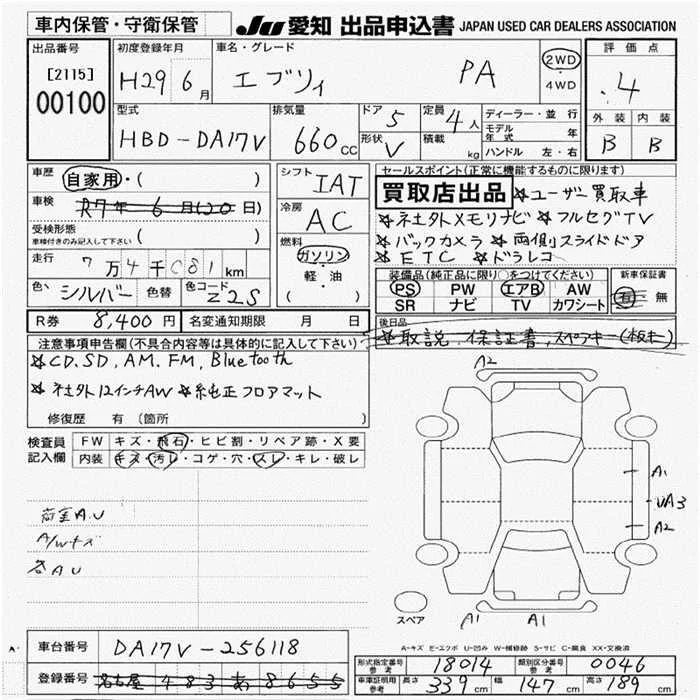 車内保管・守衛保管 JU 愛知 出品申込書 JAPAN USED CAR DEALERS ASSOCIATION
出品番号 初度登録年月 車名・グレード 評価点
[2115] 00100 H29 6月 エブリィ PA 2WD・4WD 4
型式 排気量 ドア 5 定員 4人 ディーラー・並行 外装 内装
HBD-DA17V 660cc 形状 V 積載 kg モデル年式 年 B B
ハンドル 左・右
車歴 自家用・( ) シフト IAT セールスポイント(正常に機能するものに限ります)
買取店出品 ☆ユーザー買取車
車検 R7年6月(20日) 冷房 AC ☆社外メモリナビ ☆フルセグTV
受検形態 車検付きのみ記入して下さい ( ) ☆バックカメラ ☆両側スライドドア
燃料 ガソリン・軽・油 ( ) ☆ETC ☆ドラレコ
走行 7万4千081km 装備品(純正品に限り○をつけてください) 新車保証書
色 シルバー 色替 色コード Z2S PS PW エアB AW 有・無
SR ナビ TV カワシート
R券 8,400円 名変通知期限 月 日 後日品
☆取説、保証書、スペアキー(板キー)
注意事項申告欄(不具合内容等は具体的に記入して下さい)
☆CD.SD,AM.FM,Bluetooth
☆社外12インチAW ☆純正フロアマット
修復歴 有(箇所 )
検査員記入欄 FW キズ・飛石・ヒビ割・リペア跡・X要
内装 キズ・汚レ・コゲ・穴・スレ・キレ・破レ
A2
A1
UA3
A2
荷室A.U
A/Wキズ
各AU
スペア A1 A1
A-キズ E-エクボ U-凹み W-補修跡 S-サビ C-腐食 XX-交換済
車台番号 DA17V-256118
型式指定番号 参考 18014 類別区分番号 参考 0046
登録番号 名古屋 483 あ 8655
車庫証明用 参考 長さ 339cm 幅 147cm 高さ 189cm